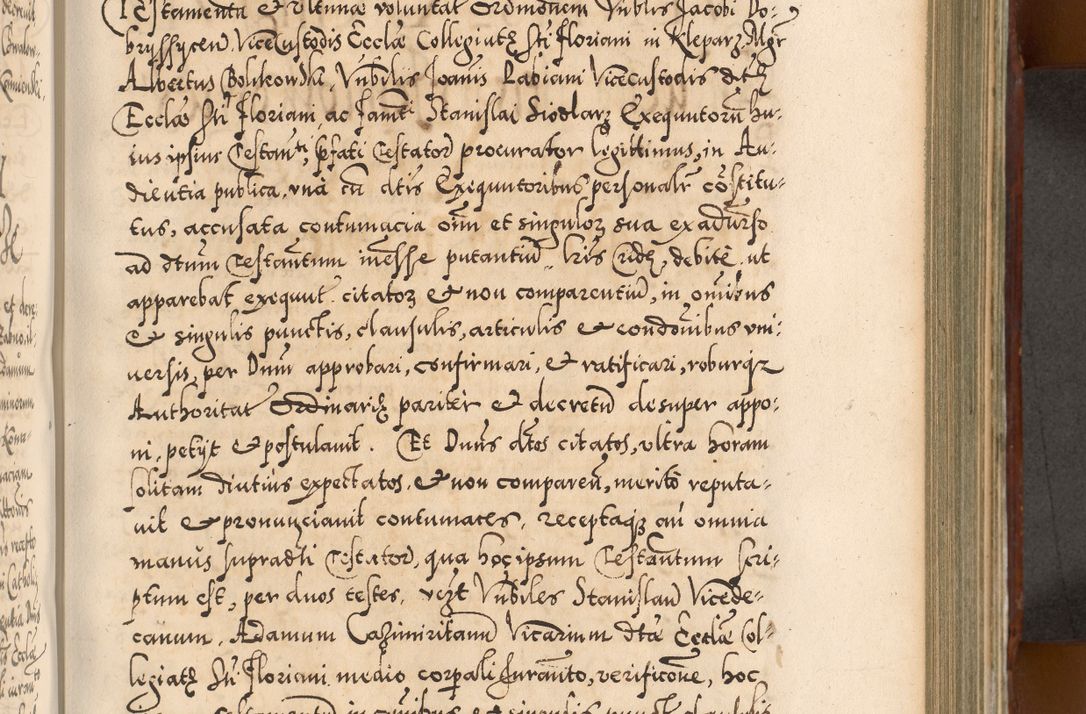 Testamenti et Vltimae voluntat Ordinationem Vnblis Jacobi Do-
bryssycen Vicecustodis Ecclae Collegiatę Sti Floriani in Kleparz Mgr
Albertus Bolikowski, Vnbilis Joanis Babiani Vicecustodis dtę
Ecclae Sti Floriani ac famti Stanislai Siodlarz Exequutorū hu-
ius ipsius Testamti, pfati Testator procurator legittimus, in Au-
dientia publica, vnà cū dtis Exequutoribus personalr cōstitu-
tus, accusata contumacia oīm et singuloꝝ sua ex aduerso
ad dtum Testamtum inesse putantiū lris eidē, debitè ut
apparebat exequut citatoꝝ & non comparentiū, in omibus
& singulis punctis, clausulis, articulis & condonibus vni-
uersis, per Dnm approbari, confirmari, & ratificari, roburqꝫ
Authoritat Ordinarię pariter & decretū desuper appo-
ni, petijt & postulauit. Et Dnus dtos citatos, vltra horam
solitam diutius expectatos, & non comparen, meritò reputa-
uit & pronunciauit contumaces, receptaqꝫ cū omnia
manus supradti Testator, qua hoc ipsum Testamtum scri-
ptum est, per duos testes, vezt Vnbiles Stanislau Vicede-
canum, Adamum Cazimiritanū Vicarium dtae Ecclae Col-
legiatę Sti Floriani medio corpali Juramto, verificone, hoc